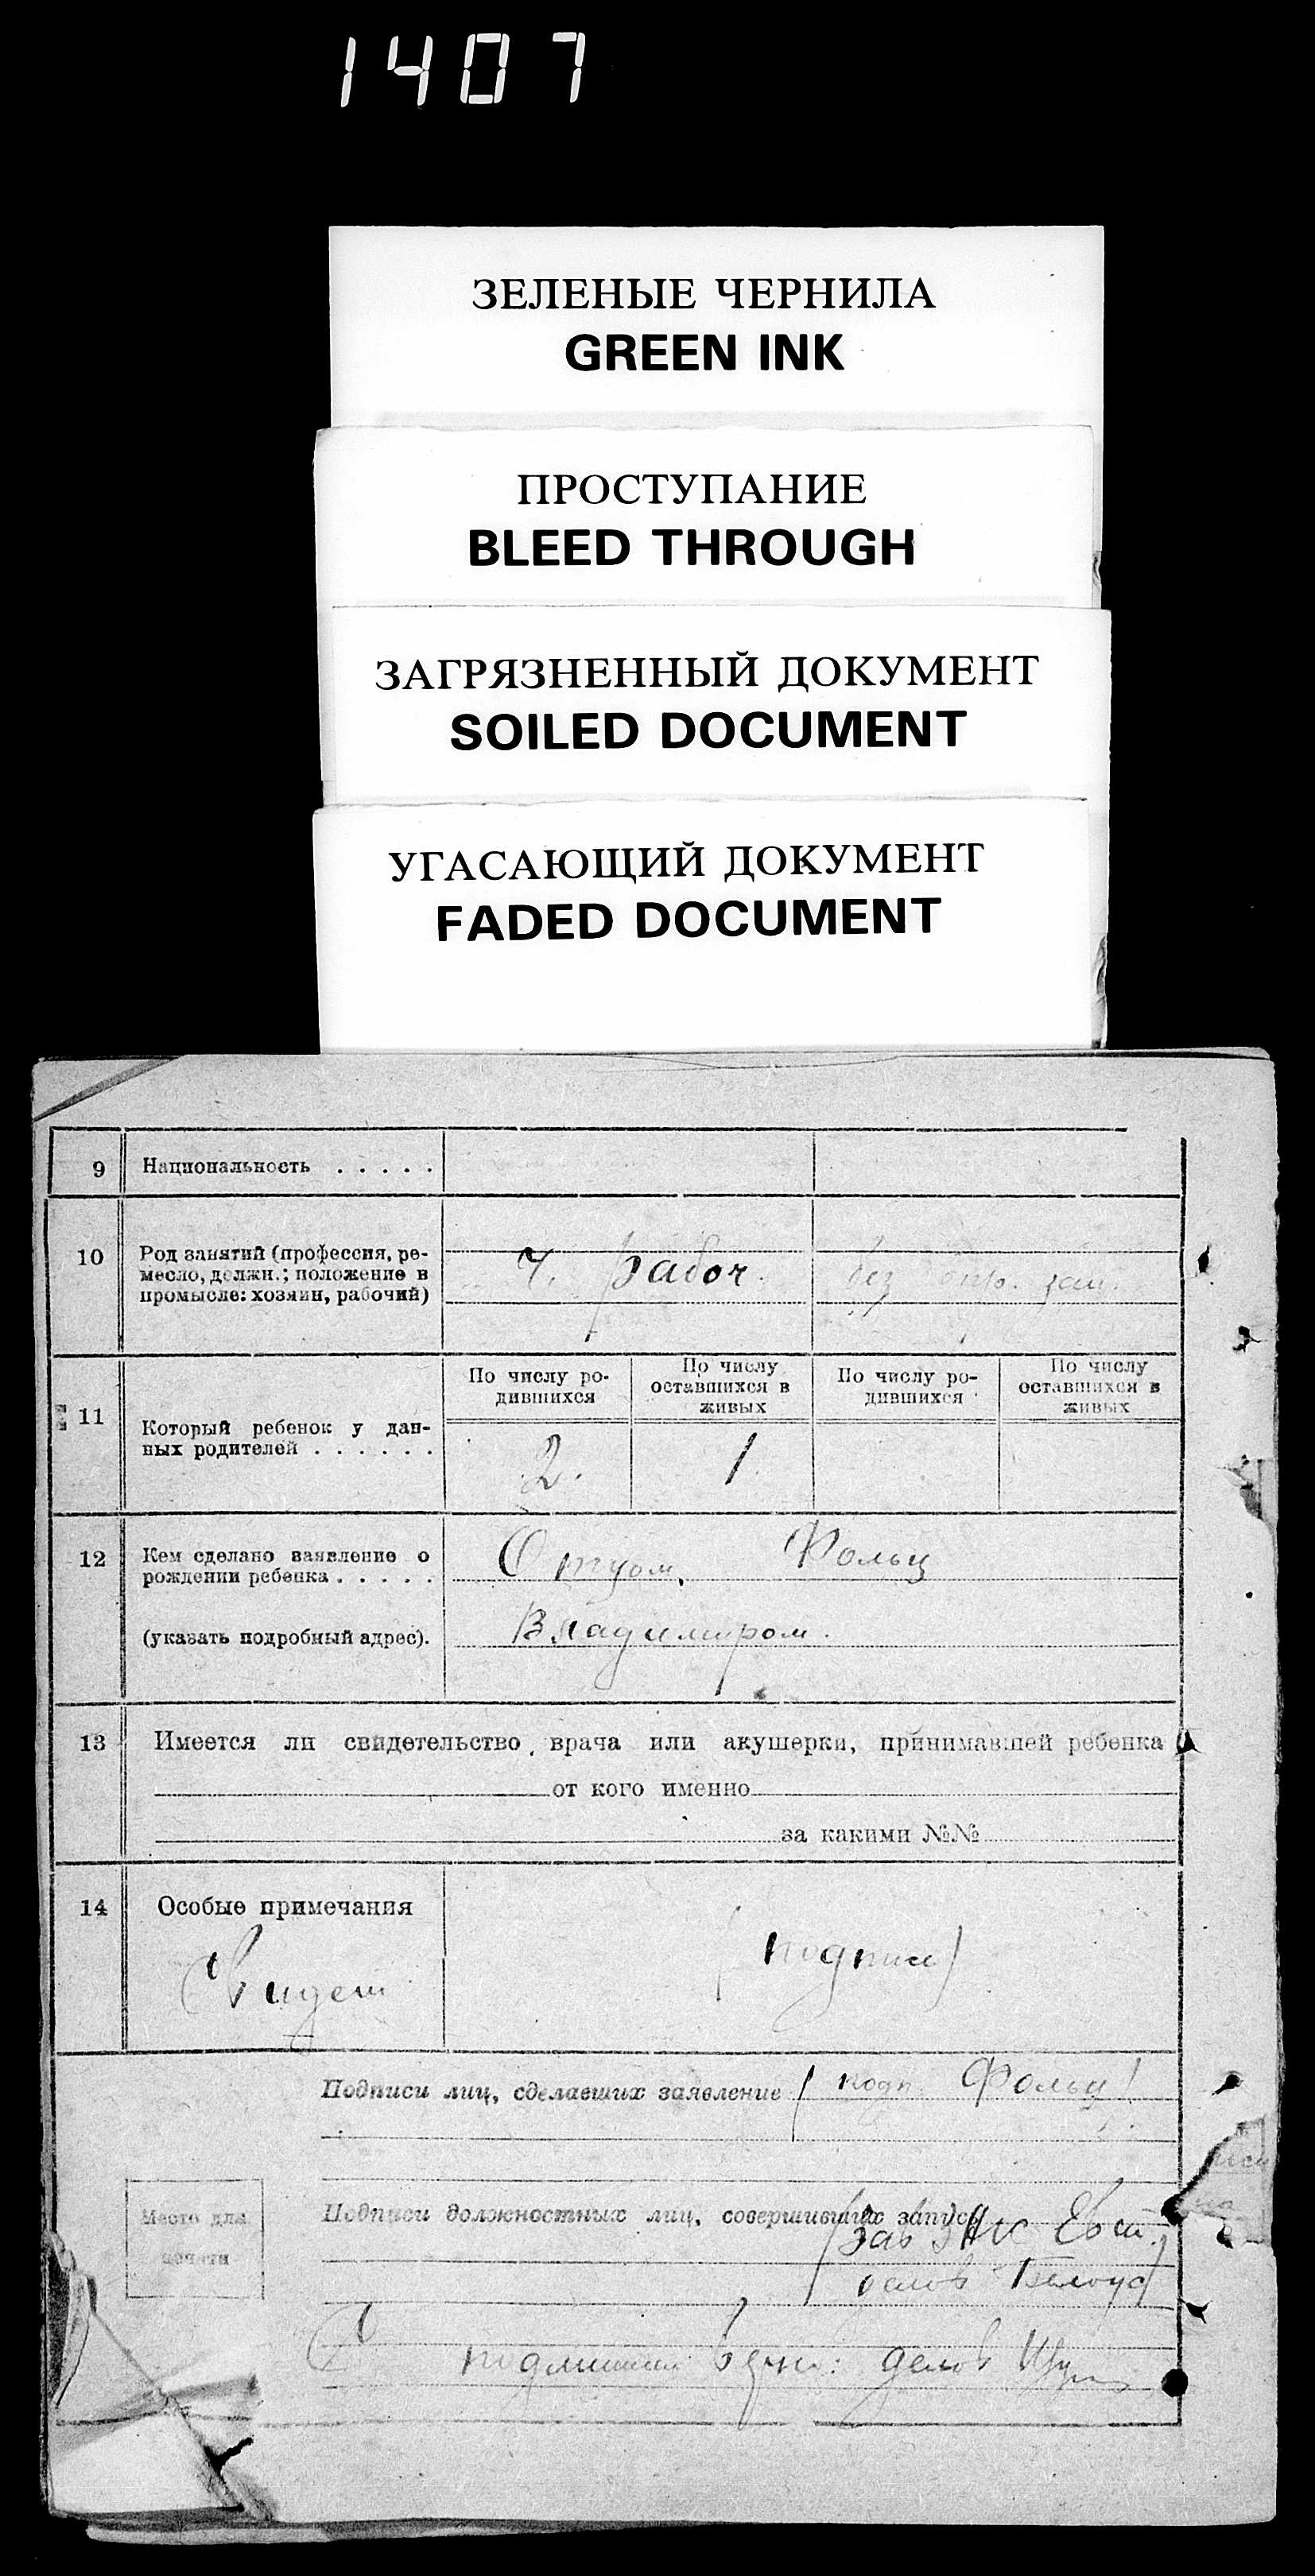 1407
ЗЕЛЕНЫЕ ЧЕРНИЛА
GREEN INK
ПРОСТУПАНИЕ
BLEED THROUGH
ЗАГРЯЗНЕННЫЙ ДОКУМЕНТ
SOILED DOCUMENT
УГАСАЮЩИЙ ДОКУМЕНТ
FADED DOCUMENT
9 Национальность . . . . .
10 Род занятий (профессия, ре-
месло, должн.; положение в
промысле: хозяин, рабочий)
Ч. рабоч. без опр. зан.
11 Который ребенок у дан-
ных родителей . . . . . .
По числу ро-
дившихся
По числу
оставшихся в
живых
По числу ро-
дившихся
По числу
оставшихся в
живых
2. 1
12 Кем сделано заявление о
рождении ребенка . . . . .
(указать подробный адрес).
Отцом, Фольц
Владимиром.
13 Имеется ли свидетельство врача или акушерки, принимавшей ребенка
от кого именно
за какими №№
14 Особые примечания
(подписи)
Подписи лиц, сделавших заявление (подп. Фольц)
Место для
печати
Подписи должностных лиц, совершивших запись
(Зав
делов
С подлинным верно: делов